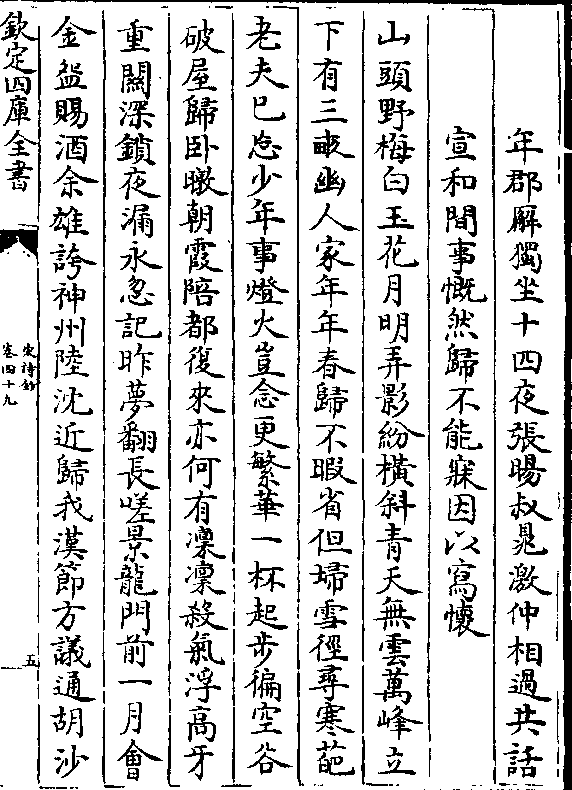 年郡廨獨坐十四夜張暘叔晁激仲相過共話
宣和間事慨然歸不能寐因以寫懷
山頭野梅白玉花月明弄影紛橫斜青天無雲萬峰立
下有三畝幽人家年年春歸不暇省但埽雪徑尋寒葩
老夫已忘少年事燈火豈念更繁華一杯起步徧空谷
破屋歸卧暾朝霞陪都復來亦何有凜凜殺氣浮高牙
重關深鎖夜漏永忽記昨夢翻長嗟景龍門前一月會
金盌賜酒余雄誇神州陸沈近歸我漢節方議通胡沙
欽定四庫全書
宋詩鈔
卷四十九
五